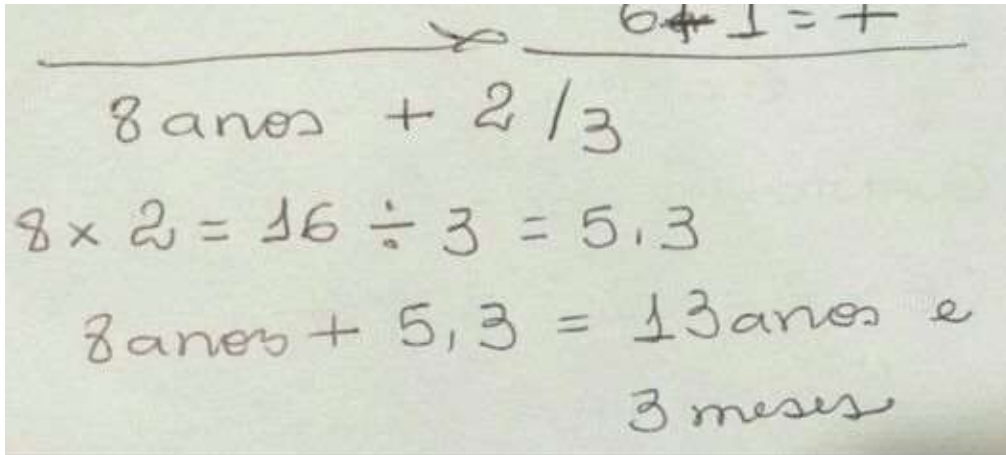 6+1 = 7
8 anos + 2/3
8 x 2 = 16 ÷ 3 = 5,3
8 anos + 5,3 = 13 anos e
3 meses